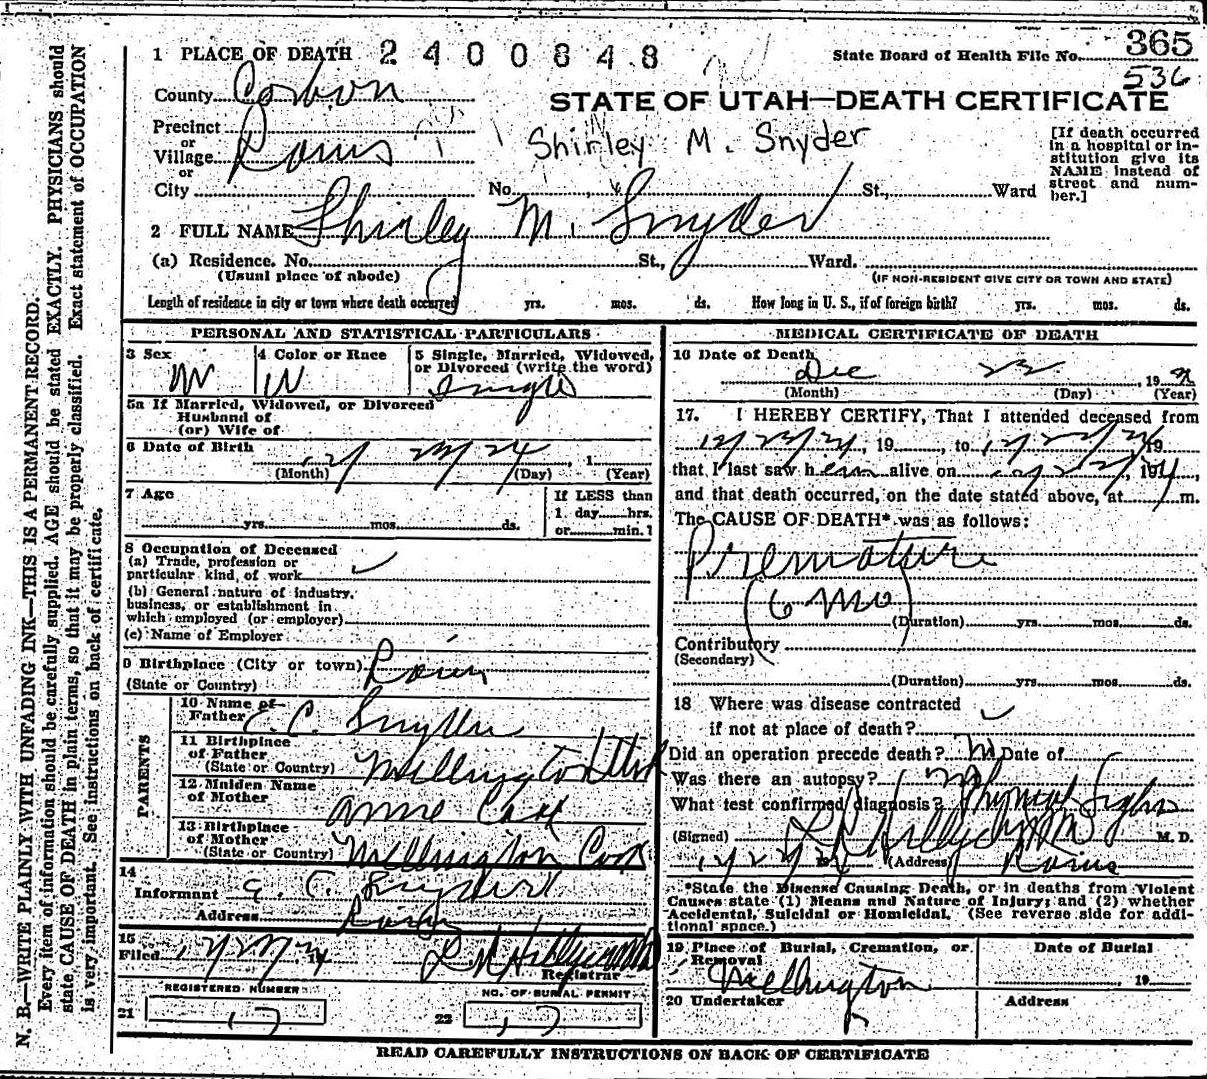 1 PLACE OF DEATH 2400848 State Board of Health File No. 365
536
County Carbon
STATE OF UTAH—DEATH CERTIFICATE
Precinct
or
Village Rains
or
City No. St., Ward
Shirley M. Snyder
[If death occurred in a hospital or in-
stitution give its
NAME instead of
street and num-
ber.]
2 FULL NAME Shirley M. Snyder
(a) Residence. No. St., Ward.
(Usual place of abode) (IF NON-RESIDENT GIVE CITY OR TOWN AND STATE)
Length of residence in city or town where death occurred yrs. mos. ds. How long in U. S., if of foreign birth? yrs. mos. ds.
PERSONAL AND STATISTICAL PARTICULARS
3 Sex M
4 Color or Race W
5 Single, Married, Widowed,
or Divorced (write the word)
Single
5a If Married, Widowed, or Divorced
Husband of
(or) Wife of
6 Date of Birth
(Month) (Day) , 1 (Year)
7 Age
yrs. mos. ds.
If LESS than
1 day hrs.
or min.?
8 Occupation of Deceased
(a) Trade, profession or
particular kind of work
(b) General nature of industry,
business, or establishment in
which employed (or employer)
(c) Name of Employer
9 Birthplace (City or town) Rains
(State or Country)
PARENTS
10 Name of
Father C. Snyder
11 Birthplace
of Father
(State or Country) Wellington Utah
12 Maiden Name
of Mother
13 Birthplace
of Mother
(State or Country) Wellington
14
Informant C. Snyder
Address Rains
15
Filed 19
Registrar
REGISTERED NUMBER
21 17
NO. OF BURIAL PERMIT
22 17
MEDICAL CERTIFICATE OF DEATH
16 Date of Death
Dec 22 , 19
(Month) (Day) (Year)
17. I HEREBY CERTIFY, That I attended deceased from
12/22/24, 19 , to 12/22/24 19
that I last saw h alive on , 19 ,
and that death occurred, on the date stated above, at m.
The CAUSE OF DEATH* was as follows:
Premature
(6 mo)
(Duration) yrs. mos. ds.
Contributory
(Secondary)
(Duration) yrs. mos. ds.
18 Where was disease contracted
if not at place of death?
Did an operation precede death? No Date of
Was there an autopsy? No
What test confirmed diagnosis? Physical Signs
(Signed) M. D.
(Address) Rains
*State the Disease Causing Death, or in deaths from Violent
Causes state (1) Means and Nature of Injury; and (2) whether
Accidental, Suicidal or Homicidal. (See reverse side for addi-
tional space.)
19 Place of Burial, Cremation, or
Removal
Wellington
Date of Burial
19
20 Undertaker Address
READ CAREFULLY INSTRUCTIONS ON BACK OF CERTIFICATE
N. B.—WRITE PLAINLY WITH UNFADING INK—THIS IS A PERMANENT RECORD.
Every item of information should be carefully supplied. AGE should be stated EXACTLY. PHYSICIANS should
state CAUSE OF DEATH in plain terms, so that it may be properly classified. Exact statement of OCCUPATION
is very important. See instructions on back of certificate.